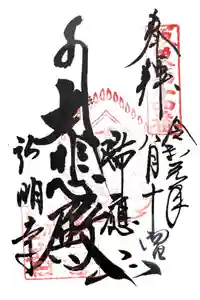 奉拝
令和元年
八月十
瑞應山
大悲殿
弘明寺